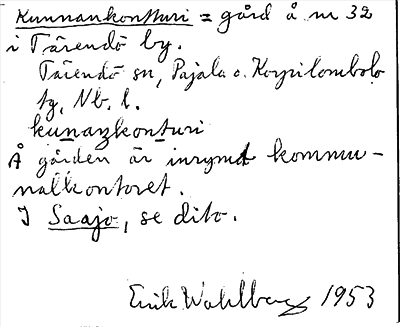 Kunnankontturi = gård å nr 32
i Tärendö by.
Tärendö sn, Pajala o. Korpilombolo
tg, Nb. l.
kunaŋkonturi
Å gården är inrymt kommu-
nalkontoret.
I Saajo, se dito.
Erik Wahlberg 1953